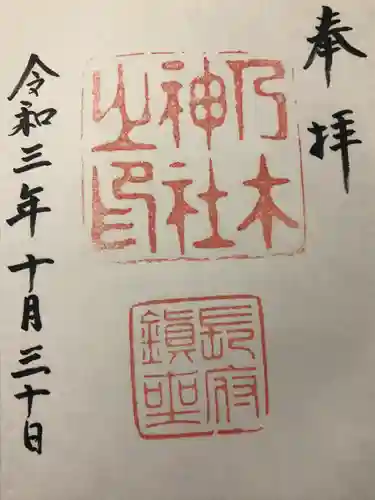 奉拝
乃木
神社
之印
長府
鎮座
令和三年十月三十日